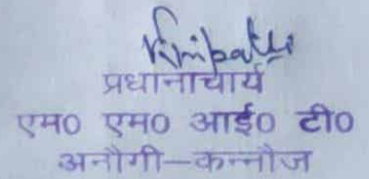 प्रधानाचार्य
एम० एम० आई० टी०
अनौगी–कन्नौज